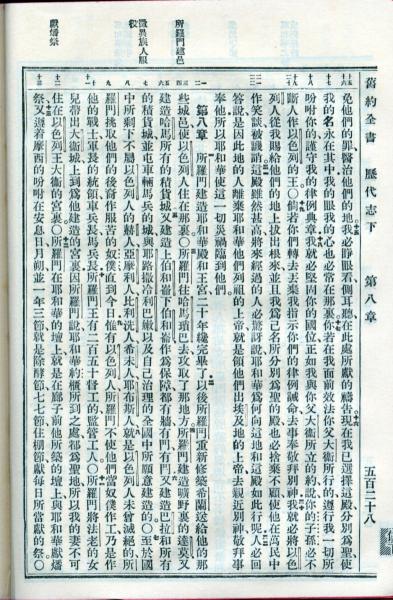 舊約全書 歷代志下 第八章 五百二十八
免他們的罪醫治他們的地我必睜眼看側耳聽在此處所獻的禱告現在我已選擇這殿分別為聖使
我的名永在其中我的眼我的心也必常在那裏你若在我面前效法你父大衞所行的遵行我一切所
吩咐你的謹守我的律例典章我就必堅固你的國位正如我與你父大衞所立的約說你的子孫必不
斷人作以色列的王○倘若你們轉去丟棄我指示你們的律例誡命去事奉敬拜別神我就必將以色
列人從我賜給他們的地上拔出根來並且我為己名所分別為聖的殿也必捨棄不顧使他在萬民中
作笑談被譏誚這殿雖然甚高將來經過的人必驚訝說耶和華為何向這地和這殿如此行呢人必回
答說是因此地的人離棄耶和華他們列祖的上帝就是領他們出埃及地的上帝去親近別神敬拜事
奉他所以耶和華使這一切災禍臨到他們
所羅門建邑
第八章 所羅門建造耶和華殿和王宮二十年纔完畢了以後所羅門重新修築希蘭送給他的那
些城邑使以色列人住在那裏○所羅門往哈馬瑣巴去攻取了那地方所羅門建造曠野裏的達莫又
建造哈馬所有的積貨城又建造上伯和崙下伯和崙作為保障都有牆有門有閂又建造巴拉和所有
的積貨城並屯車輛馬兵的城與耶路撒冷利巴嫩以及自己治理的全國中所願意建造的○至於國
徵異族人服役
中所剩下不屬以色列人的赫人亞摩利人比利洗人希未人耶布斯人就是以色列人未曾滅絕的所
羅門挑取他們的後裔作服苦的奴僕直到今日惟有以色列人所羅門不使他們當奴僕作工乃是作
他的戰士軍長的統領車兵長馬兵長所羅門王有二百五十督工的監管工人○所羅門將法老的女
兒帶出大衞城上到為他建造的宮裏因所羅門說耶和華約櫃所到之處都為聖地所以我的妻不可
獻燔祭
住在以色列王大衞的宮裏○所羅門在耶和華的壇上就是在廊子前他所築的壇上與耶和華獻燔
祭又遵着摩西的吩咐在安息日月朔並一年三節就是除酵節七七節住棚節獻每日所當獻的祭○